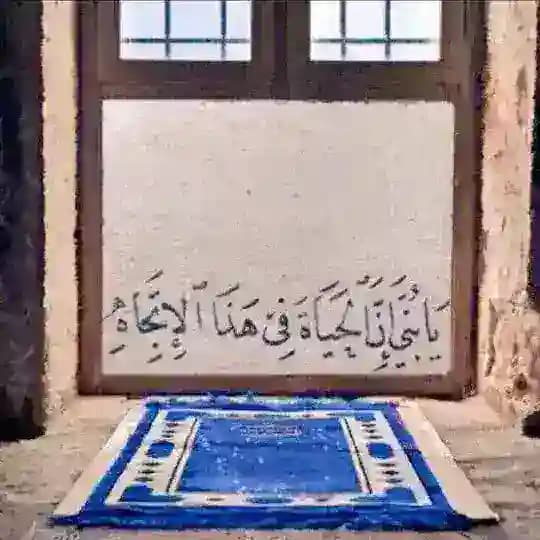 يَابُنَيَّ إِنَّ الْحَيَاةَ فِيْ هَذَا ٱلْإِتِّجَاهِ